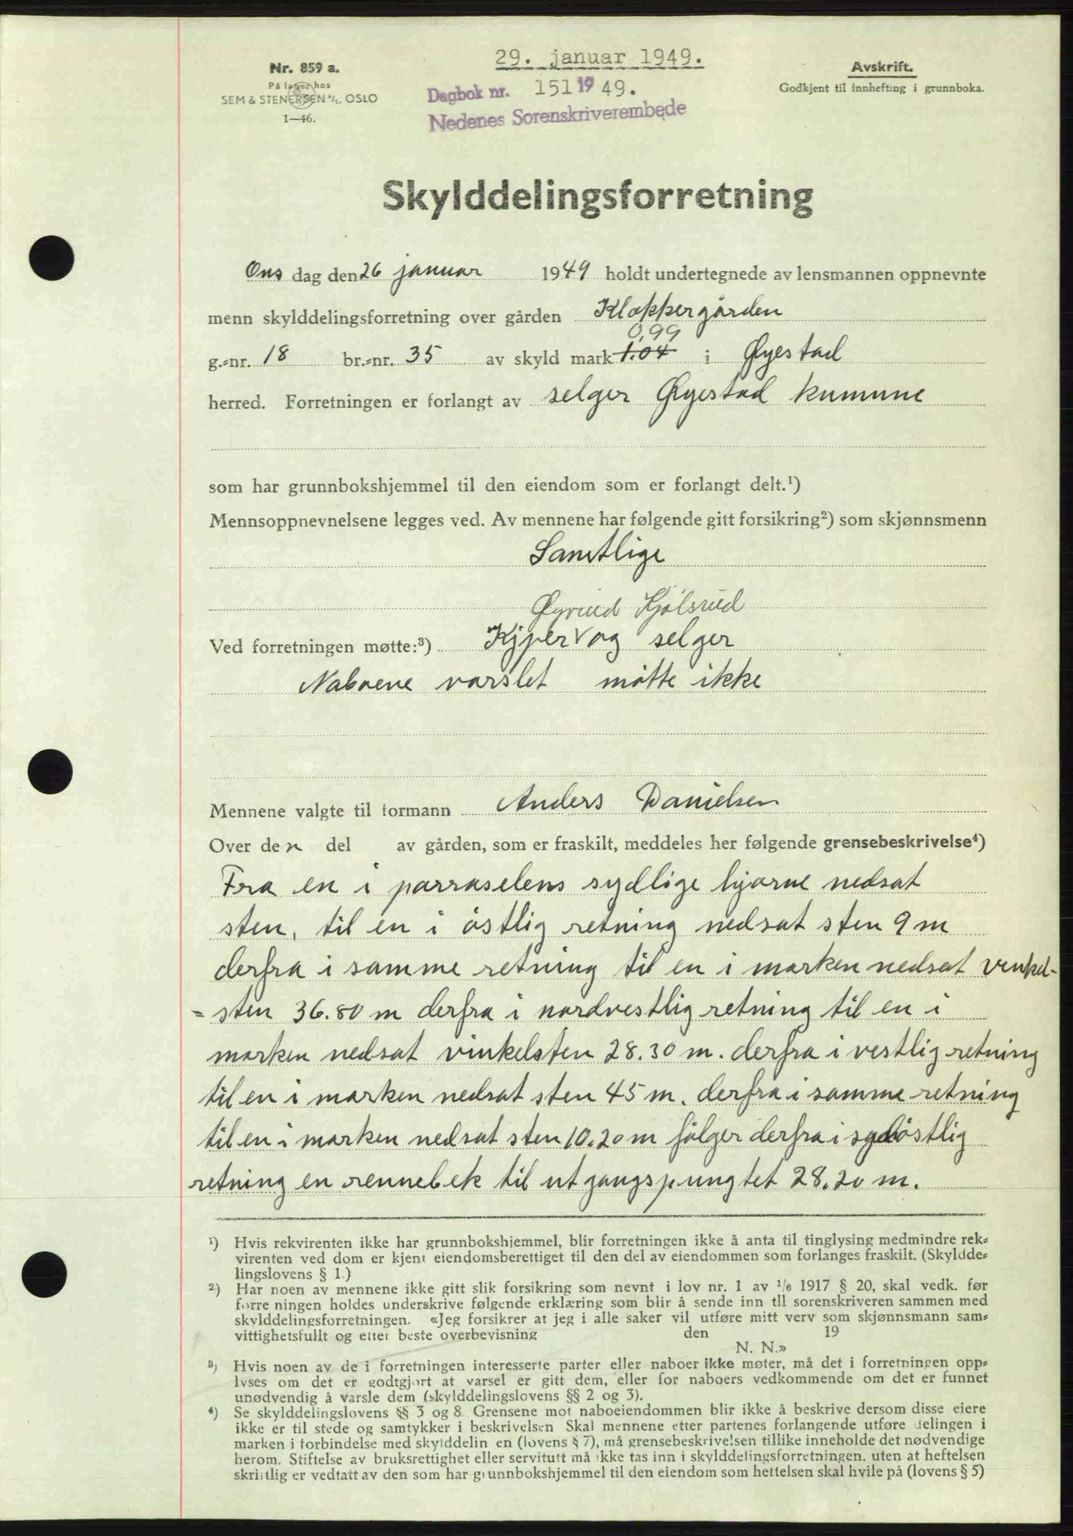 29. januar 1949.
Nr. 859 a.
På lager hos
SEM & STENERSEN A/S. OSLO
1—46.
Dagbok nr. 151 1949.
Nedenes Sorenskriverembede
Avskrift.
Godkjent til innhefting i grunnboka.
Skylddelingsforretning
Ons dag den 26 januar 1949 holdt undertegnede av lensmannen oppnevnte
menn skylddelingsforretning over gården Kloppergården
0,99
g.-nr. 18 br.-nr. 35 av skyld mark 1.04 i Øyestad
herred. Forretningen er forlangt av selger Øyestad kumune
som har grunnbokshjemmel til den eiendom som er forlangt delt.¹)
Mennsoppnevnelsene legges ved. Av mennene har følgende gitt forsikring²) som skjønnsmenn
Samtlige
Øyvind Kjølsrud
Ved forretningen møtte:³) Kjøper v og selger
Naboene varslet møtte ikke
Mennene valgte til formann Anders Danielsen
Over den del av gården, som er fraskilt, meddeles her følgende grensebeskrivelse⁴)
Fra en i parraselens sydlige hjørne nedsat
sten, til en i østlig retning nedsat sten 9 m
derfra i samme retning til en i marken nedsat vinkel-
= sten 36.80 m derfra i nordvestlig retning til en i
marken nedsat vinkelsten 28.30 m. derfra i vestlig retning
til en i marken nedsat sten 45 m. derfra i samme retning
til en i marken nedsat sten 10.20 m følger derfra i sydøstlig
retning en rennebek til utgangspungtet 28.20 m.
¹) Hvis rekvirenten ikke har grunnbokshjemmel, blir forretningen ikke å anta til tinglysing medmindre rek-
virenten ved dom er kjent eiendomsberettiget til den del av eiendommen som forlanges fraskilt. (Skyldde-
lingslovens § 1.)
²) Har noen av mennene ikke gitt slik forsikring som nevnt i lov nr. 1 av 1/6 1917 § 20, skal vedk. før
forretningen holdes underskrive følgende erklæring som blir å sende inn til sorenskriveren sammen med
skylddelingsforretningen. «Jeg forsikrer at jeg i alle saker vil utføre mitt verv som skjønnsmann sam-
vittighetsfullt og etter beste overbevisning den 19
N. N.»
³) Hvis noen av de i forretningen interesserte parter eller naboer ikke møter, må det i forretningen opp-
lyses om det er godtgjort at varsel er gitt dem, eller for naboers vedkommende om det er funnet
unødvendig å varsle dem (skylddelingslovens §§ 2 og 3).
⁴) Se skylddelingslovens §§ 3 og 8. Grensene mot naboeiendommen blir ikke å beskrive dersom disse eiere
ikke er til stede og samtykker i beskrivelsen Skal mennene etter partenes forlangende utføre delingen i
marken i forbindelse med skylddelin en (lovens § 7), må grensebeskrivelsen tillike inneholde det nødvendige
herom. Stiftelse av bruksrettighet eller servitutt må ikke tas inn i skylddelingsforretningen. uten at heftelsen
skriftlig er vedtatt av den som har grunnbokshjemmel til den eiendom som heftelsen skal hvile på (lovens § 5)